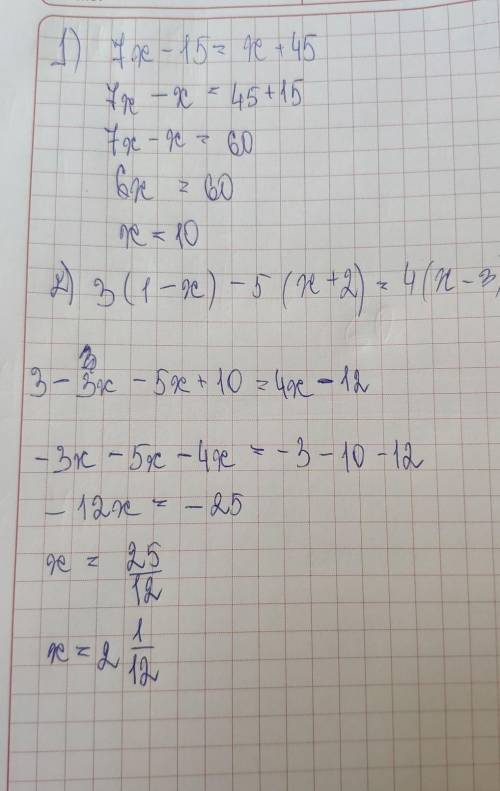 1) 7x - 15 = x + 45
7x - x = 45 + 15
7x - x = 60
6x = 60
x = 10
2) 3(1 - x) - 5(x + 2) = 4(x - 3)
3 - 3x - 5x + 10 = 4x - 12
-3x - 5x - 4x = -3 - 10 - 12
-12x = -25
x = 25/12
x = 2 1/12